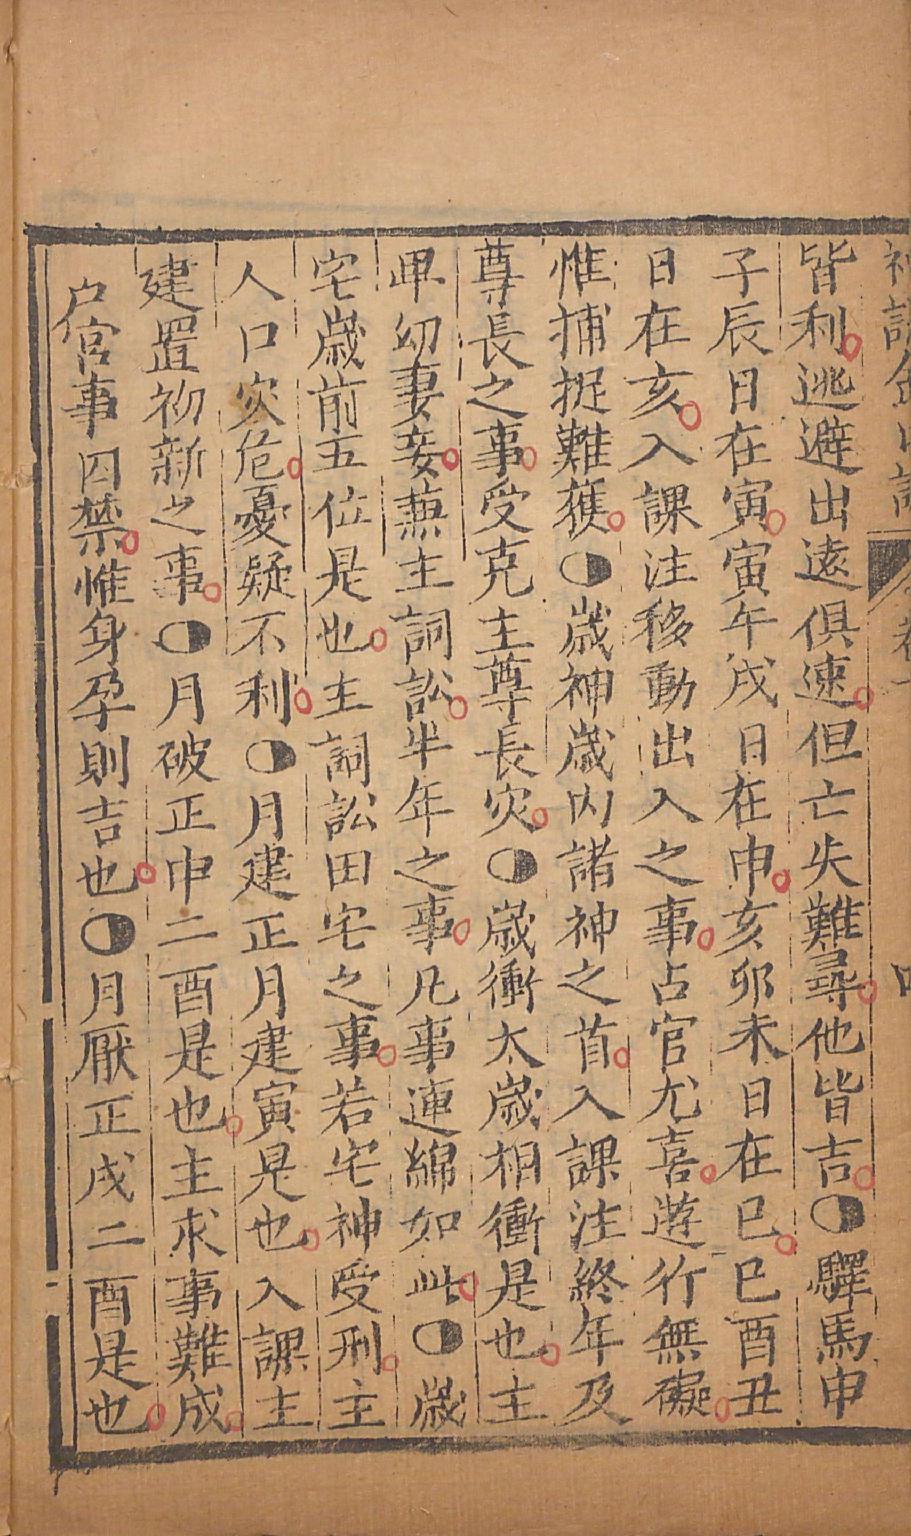 皆利逃避出遠俱速但亡失難尋他皆吉驛馬申
子辰日在寅寅午戌日在申亥卯未日在巳巳酉丑
日在亥入課注移動出入之事占官尤喜遊行無礙
惟捕捉難獲歲神歲內諸神之首入課注終年及
尊長之事受克主尊長灾歲衝太歲相衝是也主
卑幼妻妾兼主詞訟半年之事凡事連綿如此歲
宅歲前五位是也主詞訟田宅之事若宅神受刑主
人口灾危憂疑不利月建正月建寅是也入課主
建置初新之事月破正申二酉是也主求事難成
户宮事囚禁惟身孕則吉也月厭正戌二酉是也